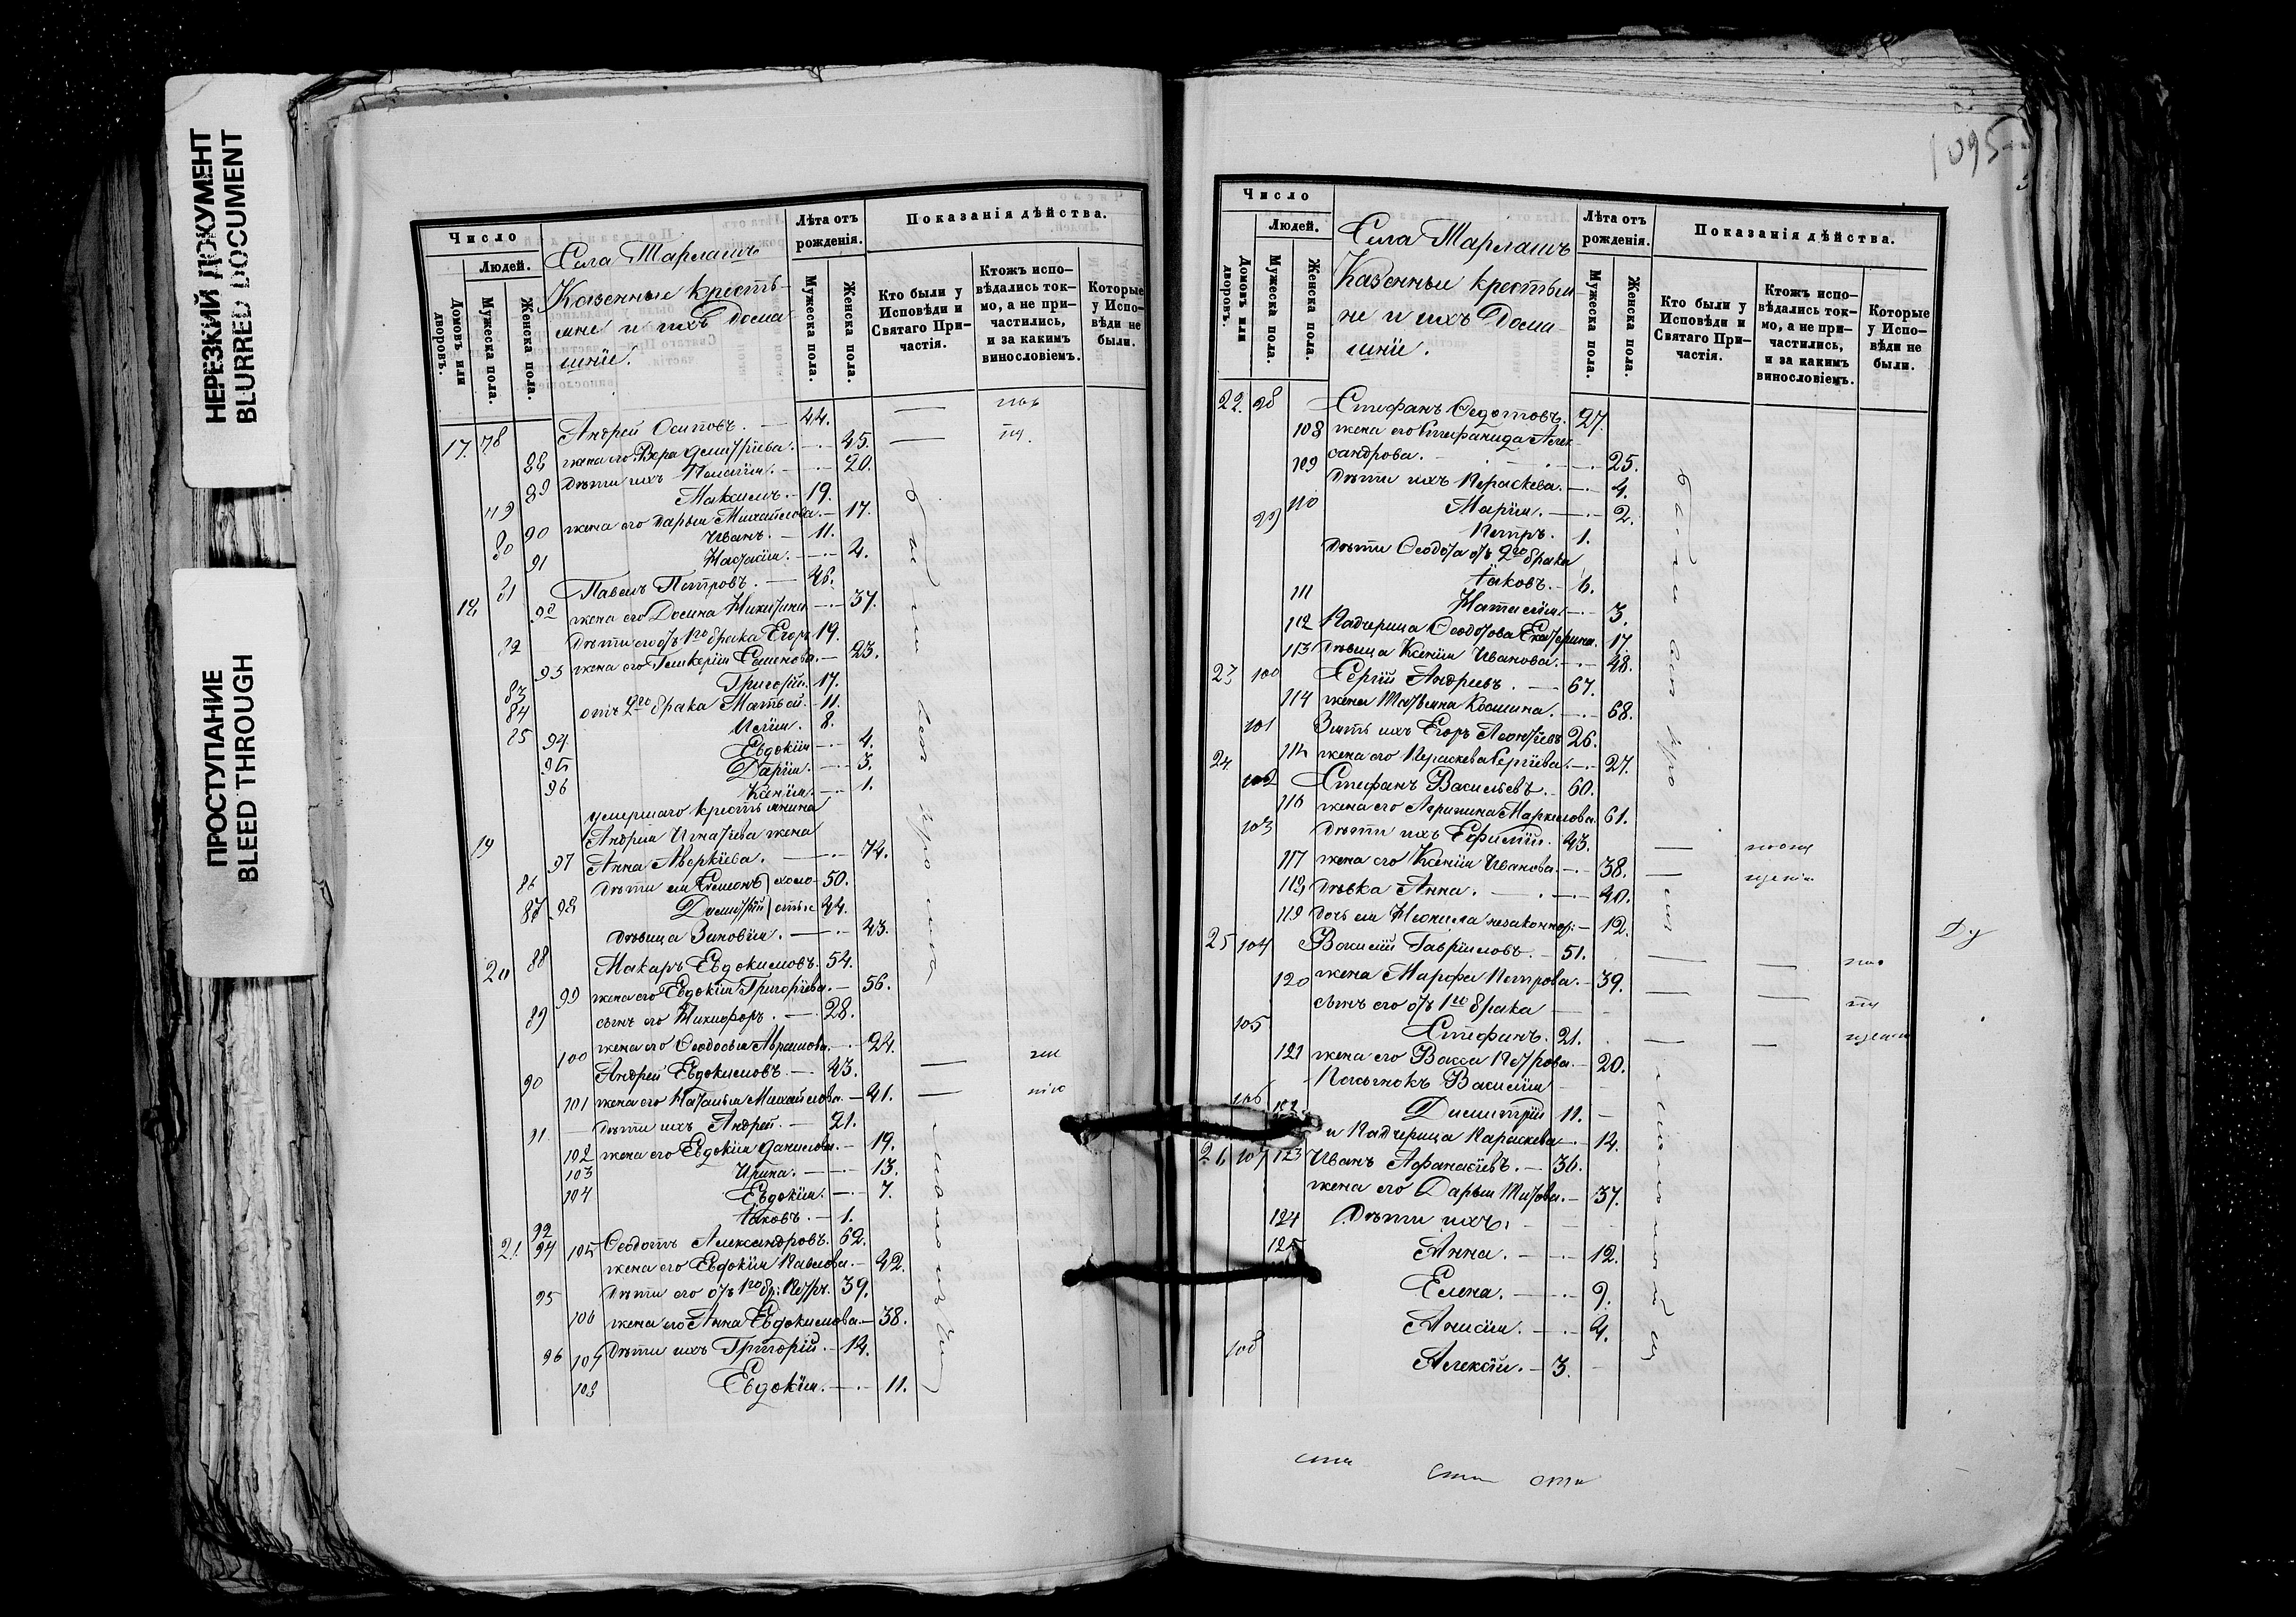 НЕРЕЗКИЙ ДОКУМЕНТ
BLURRED DOCUMENT
ПРОСТУПАНИЕ
BLEED THROUGH
Число
Людей.
Домовъ или дворовъ.
Мужеска пола.
Женска пола.
Села Тарлашъ
Казенные крестья-
яне и ихъ Дома
шніе.
Лѣта отъ рожденія.
Мужеска пола.
Женска пола.
Показанія дѣйства.
Кто были у Исповѣди и Святаго При-частія.
Ктожъ испо-вѣдались ток-мо, а не при-частились, и за какимъ винословіемъ.
Которые у Испо-вѣди не были.
17. 78 Андрей Осиповъ. 44.
88 жена его Вера Дмитріева. 45.
89 Дѣти ихъ Пелагія. 20.
79 Максимъ. 19.
90 жена его Дарья Михайлова. 17.
80 Иванъ. 11.
91 Настасія. 4.
18 81 Павелъ Петровъ. 46.
92 жена его Домна Никитина 37.
82 Дѣти его отъ 1го брака Егоръ 19.
93 жена его Гликерія Семенова. 23.
83 Григорій. 17.
84 отъ 2го брака Матвей. 11.
85 8.
94 Евдокія 4.
95 Дарія. 3.
96 Ксенія. 1.
умершаго крестьянина
19 Андрея Игнатіева жена
97 Анна Аверкіева. 74.
86 Дѣти ея Симеонъ холо- 50.
87 Димитрій стые 44.
98 Дѣвица Зиновія. 43.
20 88 Макаръ Евдокимовъ. 54.
99 жена его Евдокія Григоріева. 56.
89 сынъ его Никифоръ. 28.
100 жена его Ѳеодосья Абрамова. 24.
90 Андрей Евдокимовъ. 43.
101 жена его Наталья Михайлова. 41.
91 Дѣти ихъ Андрей. 21.
102 жена его Евдокія Данилова. 19.
103 Ирина. 13.
104 Евдокія. 7.
92 Іаковъ. 1.
21 94 Ѳеодотъ Александровъ. 62.
105 жена его Евдокія Павлова. 42.
95 Дѣти его отъ 1го бр: Петръ. 39.
106 жена его Анна Евдокимова. 38.
96 107 Дѣти ихъ Григорій. 14.
108 Евдокія. 11.
1095
Число
Людей.
Домовъ или дворовъ.
Мужеска пола.
Женска пола.
Села Тарлашъ
Казенные крестья
не и ихъ Дома-
шніе.
Лѣта отъ рожденія.
Мужеска пола.
Женска пола.
Показанія дѣйства.
Кто были у Исповѣди и Святаго При-частія.
Ктожъ испо-вѣдались ток-мо, а не при-частились, и за какимъ винословіемъ.
Которые у Испо-вѣди не были.
22. 98 Стефанъ Ѳедотовъ. 27.
108 жена его Стефанида Алек
сандрова. 25.
109 Дѣти ихъ Параскева. 4.
110 Марія. 2.
99 Петръ. 1.
Дѣти Ѳеодота отъ 2го брака
Іаковъ. 6.
111 Наталія. 3.
112 Падчерица Ѳеодотова Екатерина. 17.
113 Дѣвица Ксенія Иванова. 48.
23 100 Сергій Андреевъ. 67.
114 жена Татьяна Козмина. 68.
101 Зять ихъ Егоръ Леонтіевъ 26.
жена его Параскева Сергіева. 27.
24 102 Стефанъ Васильевъ. 60.
116 жена его Агрипина Маркелова. 61.
103 Дѣти ихъ Ефимій. 43.
117 жена его Ксенія Иванова. 38.
118 Дѣвка Анна. 40.
119 Дочь ея Неонила незаконнор: 12.
25 104 Василій Гавріиловъ. 51.
120 жена Марфа Петрова. 39.
сынъ его отъ 1го брака
105 Стефанъ. 21.
121 жена его Васса Петрова. 20.
Пасынокъ Василія
106 Димитрій 11.
122 и Падчерица Параскева 14.
26 107 Иванъ Афанасіевъ. 36.
123 жена его Дарья Титова. 37.
Дѣти ихъ:
124 Анна. 12.
125 Елена. 9.
Анисія. 4.
108 Алексій. 3.